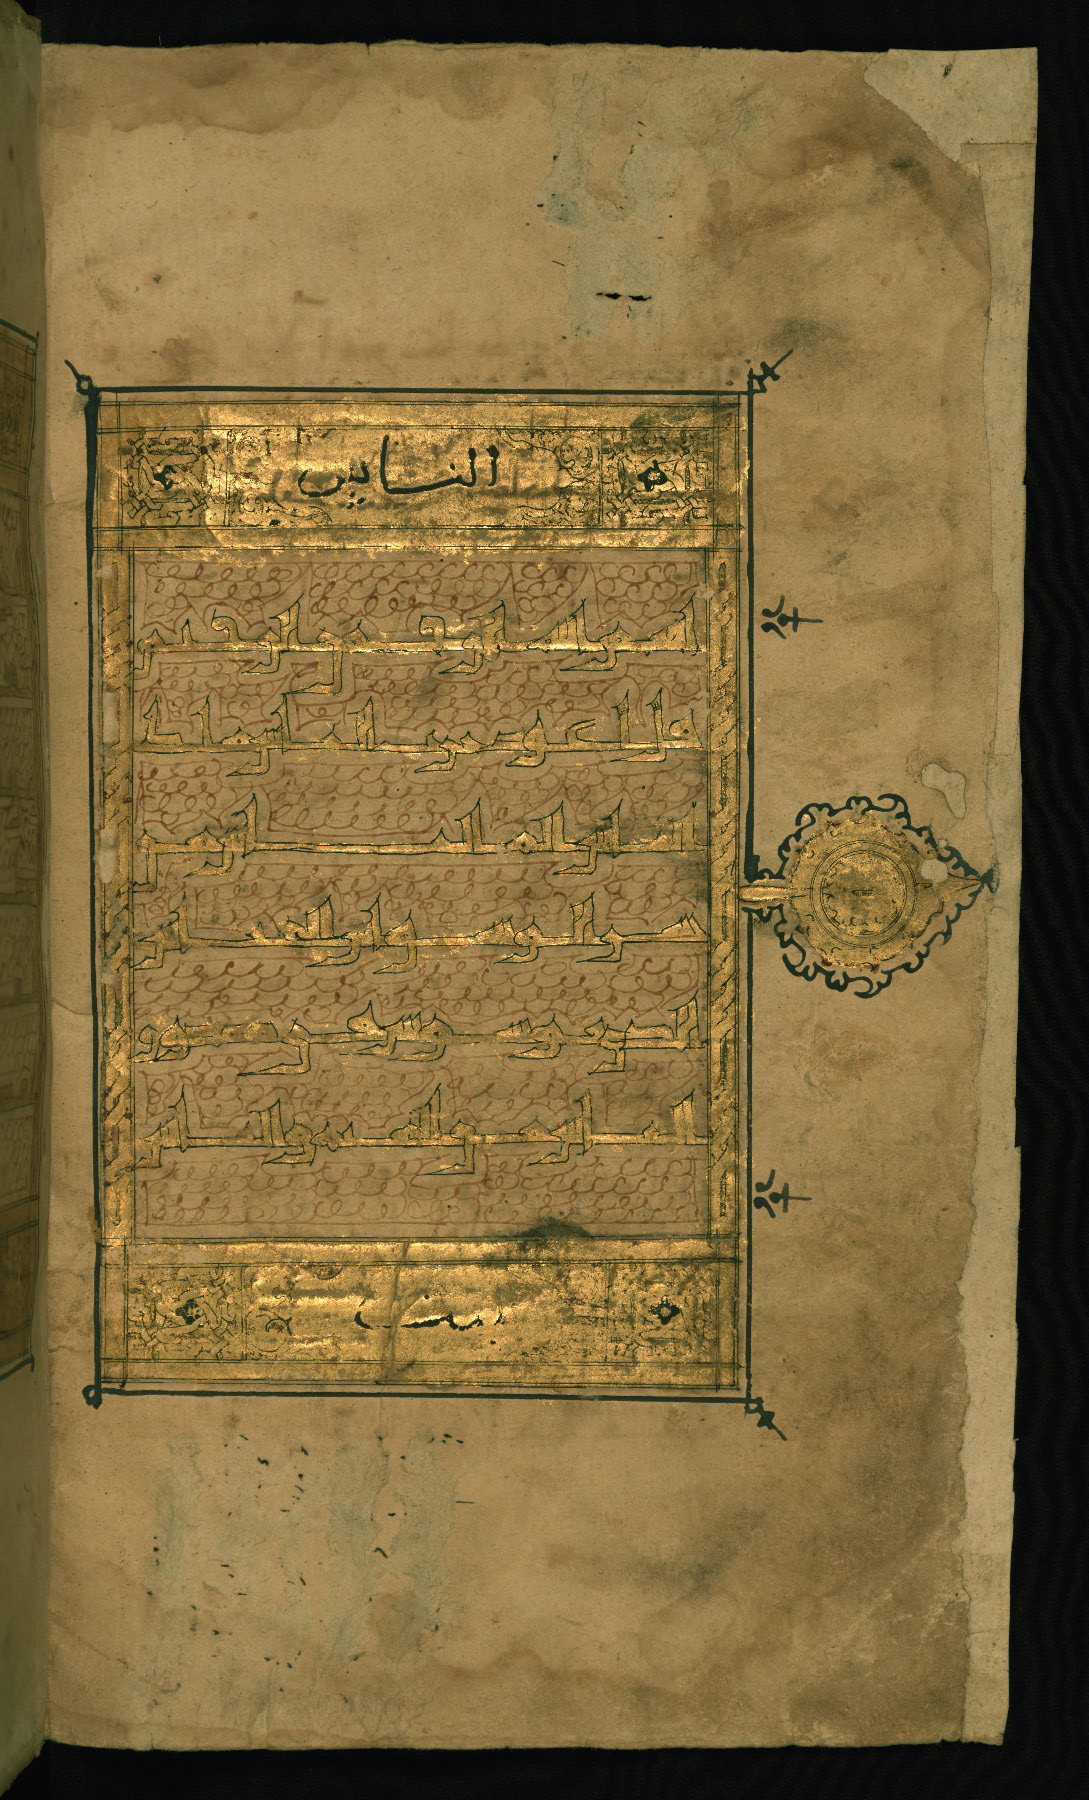 الناس
بسم الله الرحمن الرحيم
قل اعوذ برب الناس ملك
الناس اله الناس من
شر الوسواس الخناس
الذي يوسوس في صدور
الناس من الجنة والناس